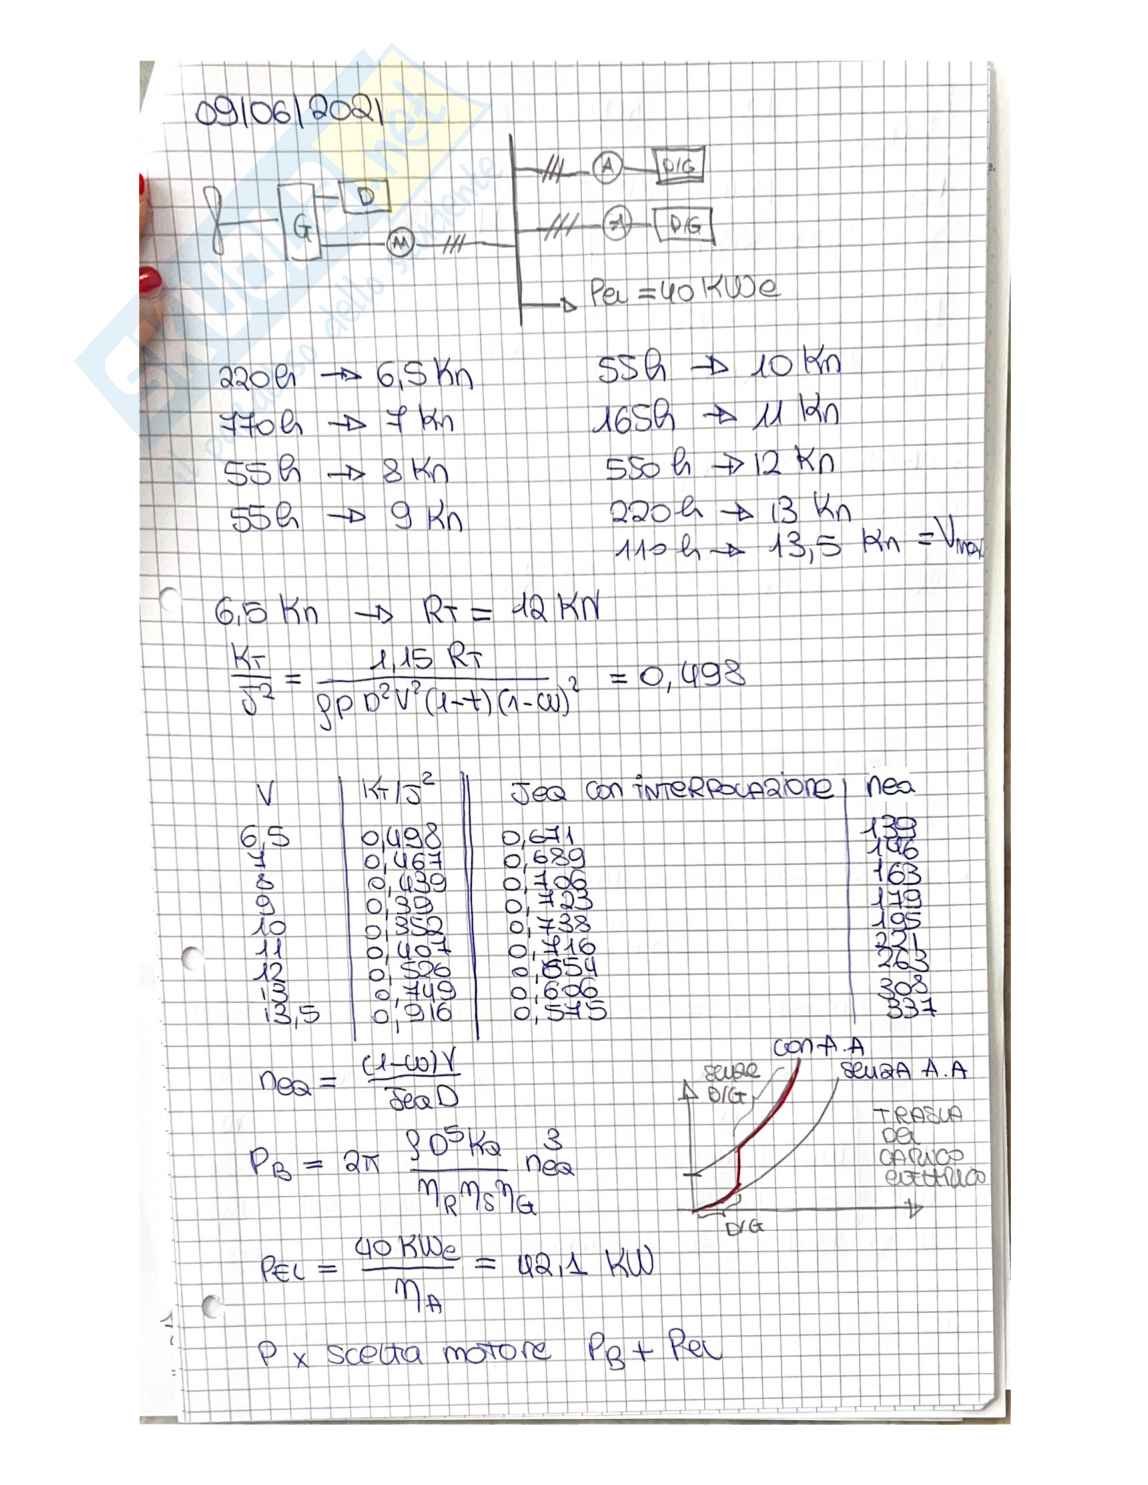 09/06/2021
A D/G
D
G
M
A D/G
Pel = 40 KWe
220h → 6,5 Kn
770h → 7 Kn
55h → 8 Kn
55h → 9 Kn
55h → 10 Kn
165h → 11 Kn
550h → 12 Kn
220h → 13 Kn
110h → 13,5 Kn = Vmax
6,5 Kn → RT = 12 KN
KT/J² = 1,15 RT / ρP D²V²(1-t)(1-ω)² = 0,498
V | KT/J² | Jeq con INTERPOLAZIONE | neq
6,5 | 0,498 | 0,671 | 139
7 | 0,467 | 0,689 | 146
8 | 0,439 | 0,706 | 163
9 | 0,39 | 0,723 | 179
10 | 0,352 | 0,738 | 195
11 | 0,407 | 0,716 | 221
12 | 0,526 | 0,654 | 263
13 | 0,749 | 0,606 | 308
13,5 | 0,916 | 0,575 | 337
neq = (1-ω)V / Jeq D
PB = 2π ρD⁵KQ / ηR ηS ηG neq³
PEL = 40 KWe / ηA = 42,1 KW
P x scelta motore PB + Pel
con A.A
senza D/G
senza A.A
TRASLA
DEL
CARICO
ELETTRICO
D/G